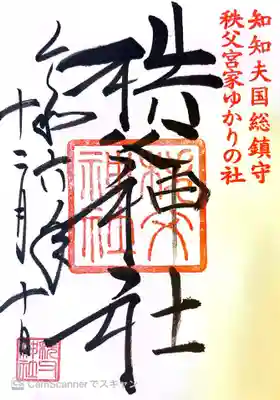 知知夫国総鎮守
秩父宮家ゆかりの社
秩父神社
令和六年
十二月十日
CamScannerでスキャン